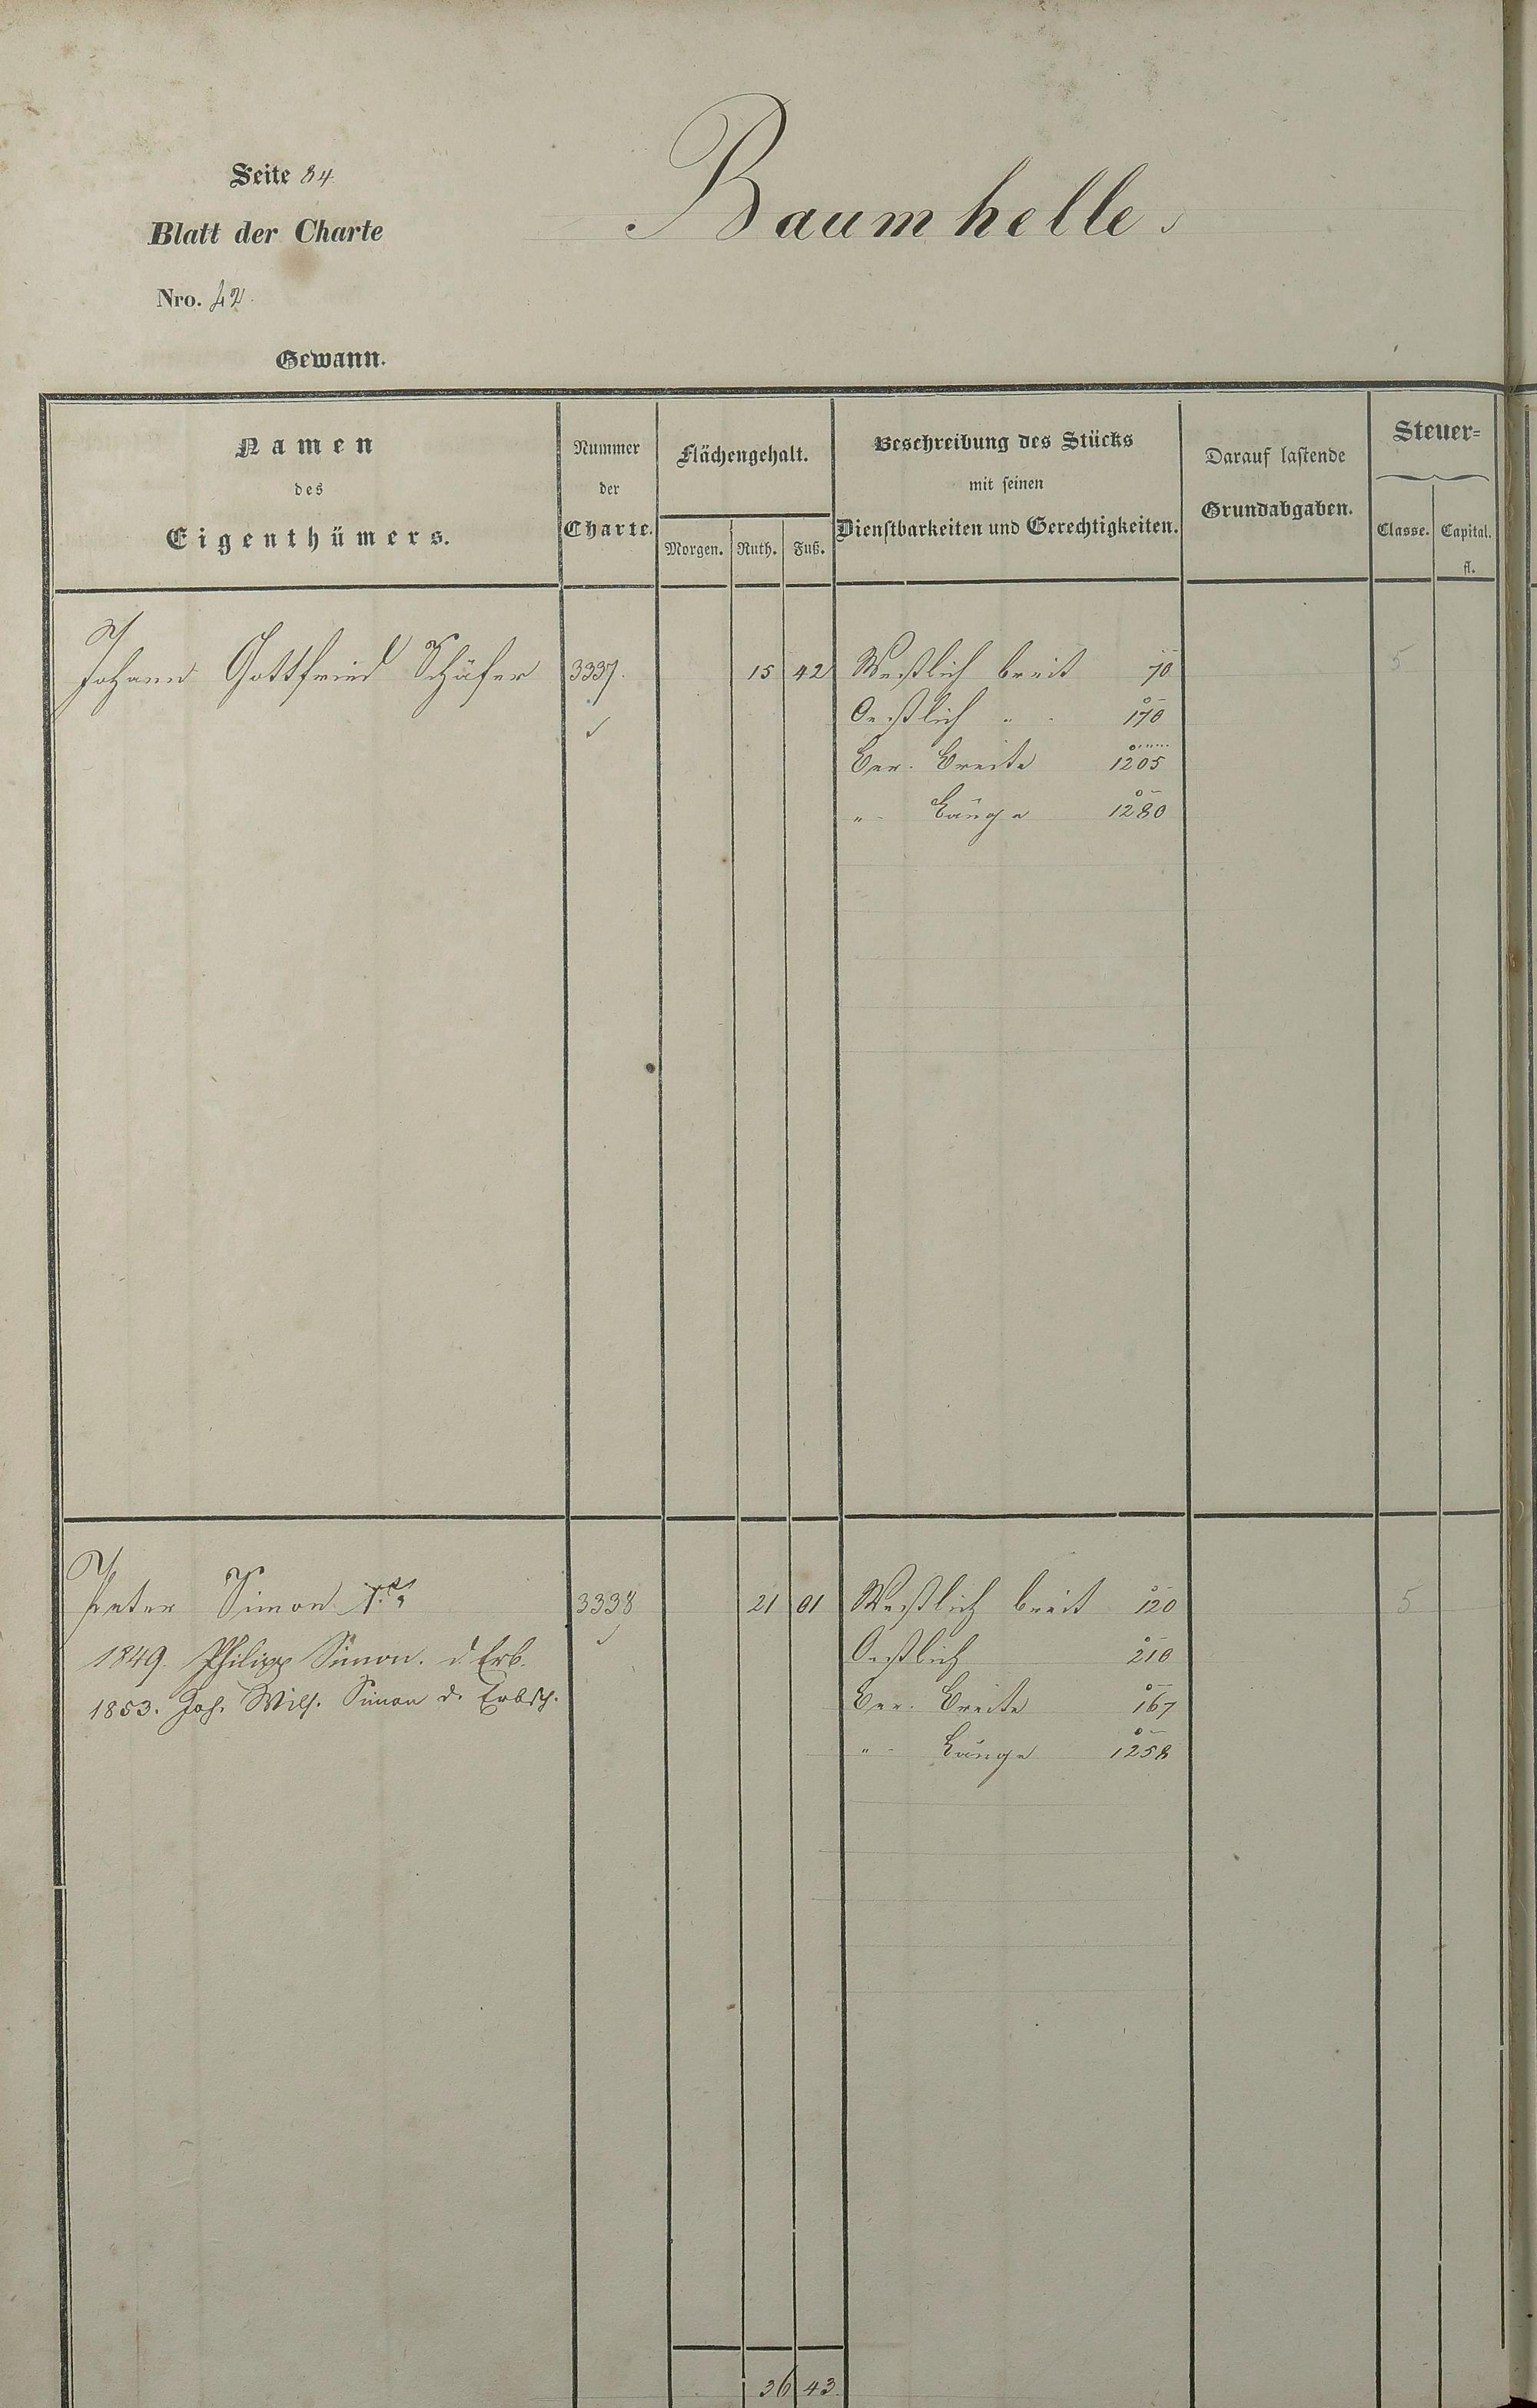 Seite 84
Blatt der Charte
Nro. 42.
Baumhelle.
Gewann.
Namen
des
Eigenthümers.
Nummer
der
Charte.
Flächengehalt.
Morgen. Ruth. Fuß.
Beschreibung des Stücks
mit seinen
Dienstbarkeiten und Gerechtigkeiten.
Darauf lastende
Grundabgaben.
Steuer=
Classe. Capital.
fl.
Johann Gottfried Schäfer 3337. 15 42 Westlich breit 70 5
Oestlich " 170
Ber. Breite 1205
" Länge 1280
Peter Simon 3338 21 01 Westlich breit 120 5
1849. Philipp Simon. d. Erb. Oestlich 210
1853. Joh. Wilh. Simon d. Erbsch. Ber. Breite 167
" Länge 1258
36 43.